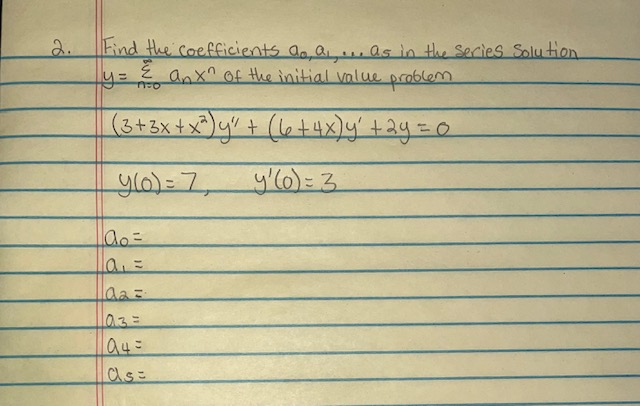 2. Find the coefficients a₀, a₁, ... a₅ in the series solution
y = Σ∞n=0 aₙxⁿ of the initial value problem
(3+3x+x²)y'' + (6+4x)y' + 2y = 0
y(0) = 7, y'(0) = 3
a₀ =
a₁ =
a₂ =
a₃ =
a₄ =
a₅ =